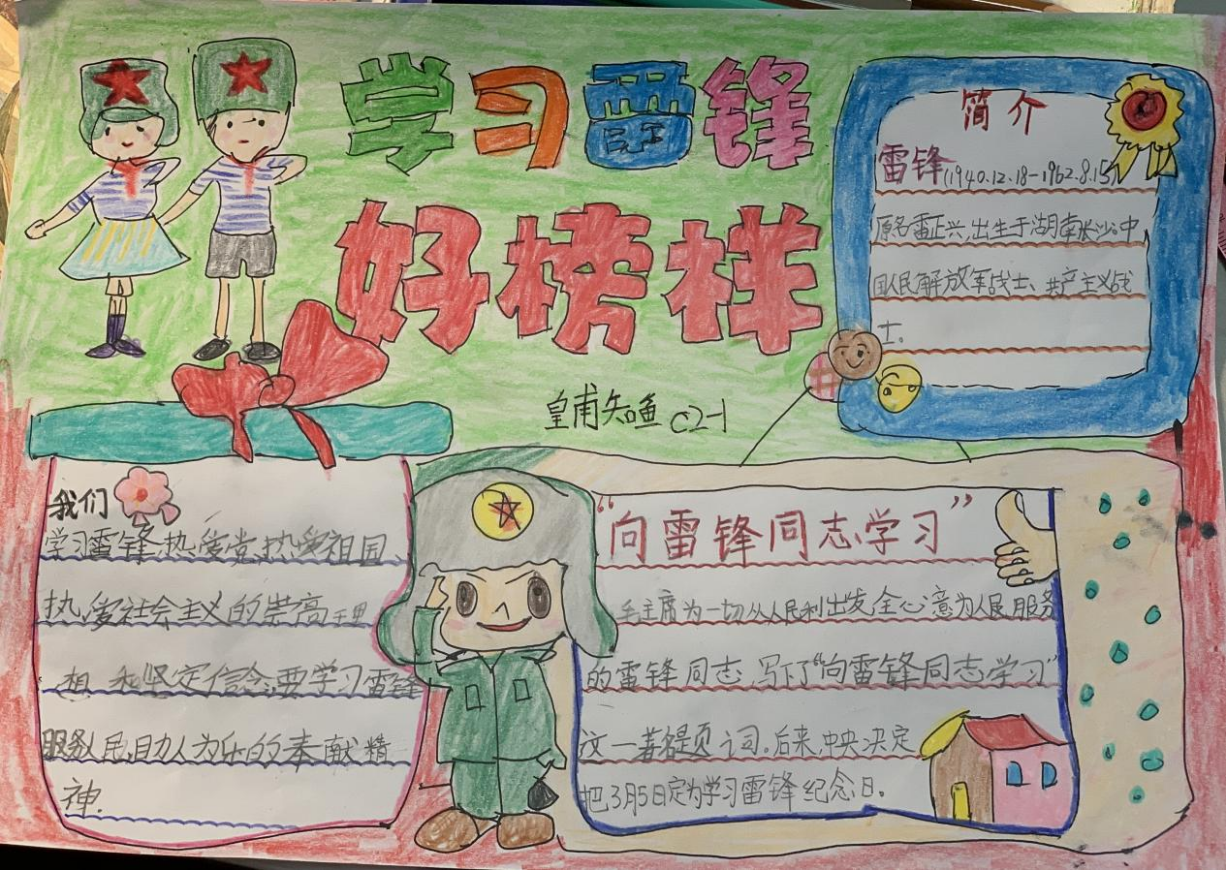 学习雷锋
好榜样
皇甫知鱼 C2-1
简介
雷锋(1940.12.18-1962.8.15)
原名雷正兴,出生于湖南长沙。中
国人民解放军战士、共产主义战
士。
我们
学习雷锋,热爱党,热爱祖国、
热爱社会主义的崇高理
想和坚定信念,要学习雷锋
服务人民,助人为乐的奉献精
神.
“向雷锋同志学习”
毛主席为一切从人民利出发,全心意为人民服务
的雷锋同志,写下了“向雷锋同志学习”
这一著名题词。后来,中央决定
把3月5日定为学习雷锋纪念日。